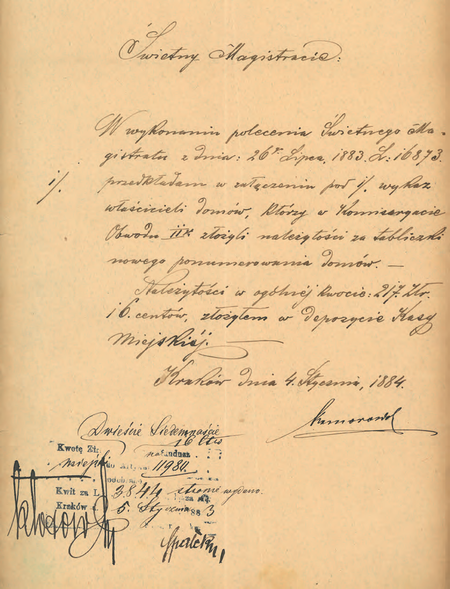 Świetny Magistracie:
W wykonaniu polecenia Świetnego Ma-
gistratu z dnia: 26go Lipca, 1883. L: 16873.
1/. przedkładam w załączeniu pod 1/. wykaz
właścicieli domów, którzy w Komisaryacie
Obwodu IIK złożyli należytości za tabliczki
nowego ponumerowania domów. —
Należytości w ogólnej kwocie: 217. Złr.
16. centów, złożyłem w depozycie Kasy
Miejskiéj. —
Kraków dnia 4. Stycznia, 1884.
Komorowski
Dwieście Siedemnaście
16 ctw
Kwotę Zł.
11984.
Kwit za L 3844 wydano.
Kraków 5 Stycznia 188 3